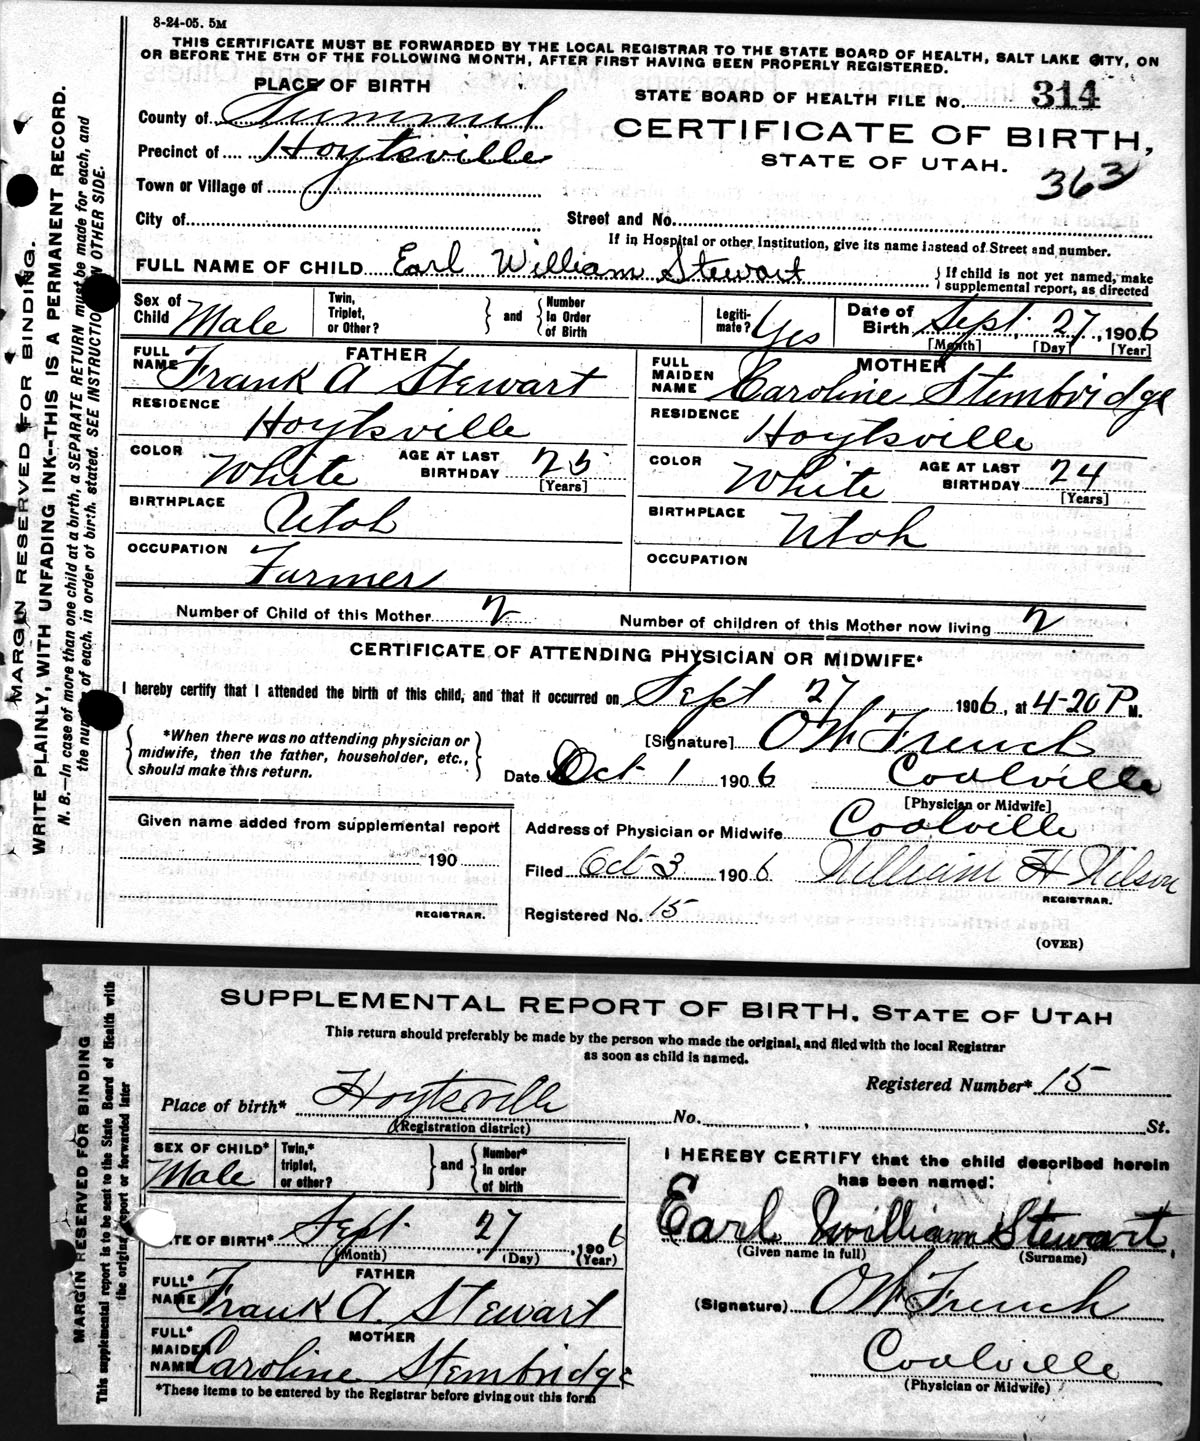 8-24-05. 5M
THIS CERTIFICATE MUST BE FORWARDED BY THE LOCAL REGISTRAR TO THE STATE BOARD OF HEALTH, SALT LAKE CITY, ON
OR BEFORE THE 5TH OF THE FOLLOWING MONTH, AFTER FIRST HAVING BEEN PROPERLY REGISTERED.
PLACE OF BIRTH
STATE BOARD OF HEALTH FILE No. 314
County of Summit
CERTIFICATE OF BIRTH,
Precinct of Hoytsville
STATE OF UTAH.
363
Town or Village of
City of
Street and No.
If in Hospital or other Institution, give its name instead of Street and number.
FULL NAME OF CHILD Earl William Stewart
{ If child is not yet named, make
supplemental report, as directed
Sex of Child Male
Twin, Triplet, or Other?
} and {
Number in Order of Birth
Legiti-mate? Yes
Date of Birth Sept. 27, 1906
[Month] [Day] [Year]
FATHER
FULL NAME Frank A Stewart
RESIDENCE
Hoytsville
COLOR White
AGE AT LAST BIRTHDAY 25
[Years]
BIRTHPLACE
Utah
OCCUPATION
Farmer
MOTHER
FULL MAIDEN NAME Caroline Stembridge
RESIDENCE
Hoytsville
COLOR White
AGE AT LAST BIRTHDAY 24
[Years]
BIRTHPLACE
Utah
OCCUPATION
Number of Child of this Mother 2
Number of children of this Mother now living 2
CERTIFICATE OF ATTENDING PHYSICIAN OR MIDWIFE*
I hereby certify that I attended the birth of this child, and that it occurred on Sept 27 1906, at 4-20 P M.
{ *When there was no attending physician or
midwife, then the father, householder, etc.,
should make this return. }
[Signature] O W French
Date Oct 1 1906
Coalville
[Physician or Midwife]
Given name added from supplemental report
190
REGISTRAR.
Address of Physician or Midwife Coalville
Filed Oct 3 1906
William H Wilson
REGISTRAR.
Registered No. 15
(OVER)
MARGIN RESERVED FOR BINDING.
WRITE PLAINLY, WITH UNFADING INK--THIS IS A PERMANENT RECORD.
N. B.—In case of more than one child at a birth, a SEPARATE RETURN must be made for each, and
the number of each, in order of birth, stated. SEE INSTRUCTION ON OTHER SIDE.
SUPPLEMENTAL REPORT OF BIRTH, STATE OF UTAH
This return should preferably be made by the person who made the original, and filed with the local Registrar
as soon as child is named.
Registered Number* 15
Place of birth* Hoytsville
(Registration district)
No. , St.
SEX OF CHILD* Male
Twin,* triplet, or other?
} and {
Number* in order of birth
DATE OF BIRTH* Sept. 27, 1906
(Month) (Day) (Year)
FATHER
FULL* NAME Frank A. Stewart
MOTHER
FULL* MAIDEN NAME Caroline Stembridge
*These items to be entered by the Registrar before giving out this form
I HEREBY CERTIFY that the child described herein
has been named:
Earl William Stewart,
(Given name in full) (Surname)
(Signature) O W French
Coalville
(Physician or Midwife)
MARGIN RESERVED FOR BINDING
This supplemental report is to be sent to the State Board of Health with
the original report or forwarded later